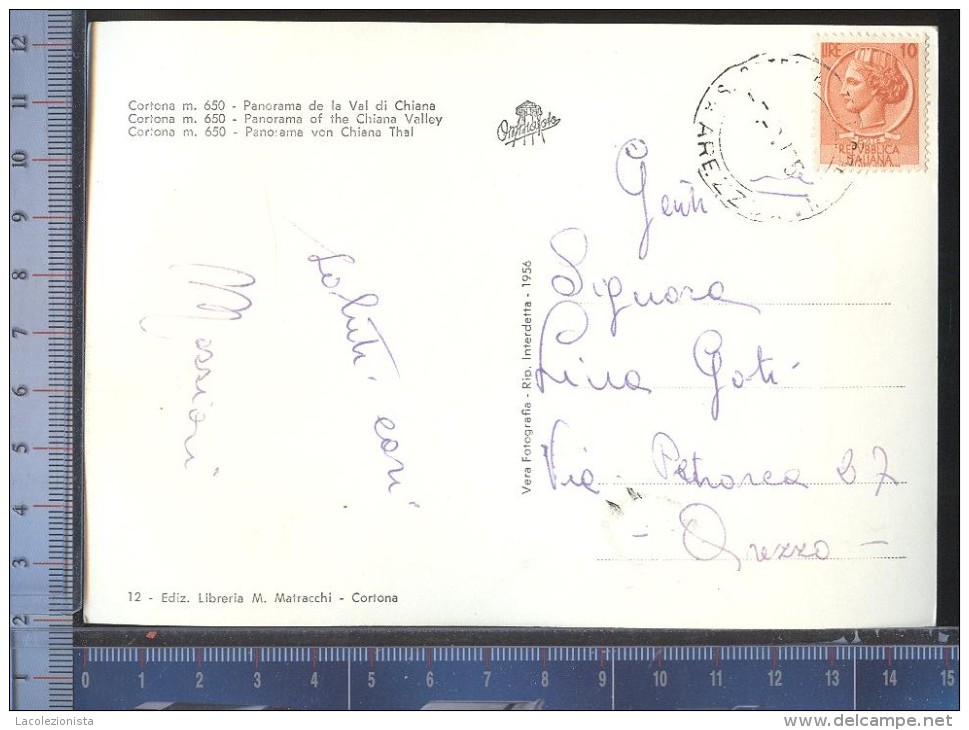 Cortona m. 650 - Panorama de la Val di Chiana
Cortona m. 650 - Panorama of the Chiana Valley
Cortona m. 650 - Panorama von Chiana Thal
LIRE 10
REPUBBLICA
ITALIANA
AREZZ
Saluti cari
Vera Fotografia - Rip. Interdetta - 1956
Gent.
Signora
Lina Goti
Via Petrarca 27
- Arezzo -
12 - Ediz. Libreria M. Matracchi - Cortona
12
11
10
9
8
7
6
5
4
3
2
1
0 1 2 3 4 5 6 7 8 9 10 11 12 13 14 15
Lacolezionista
delcampe.net